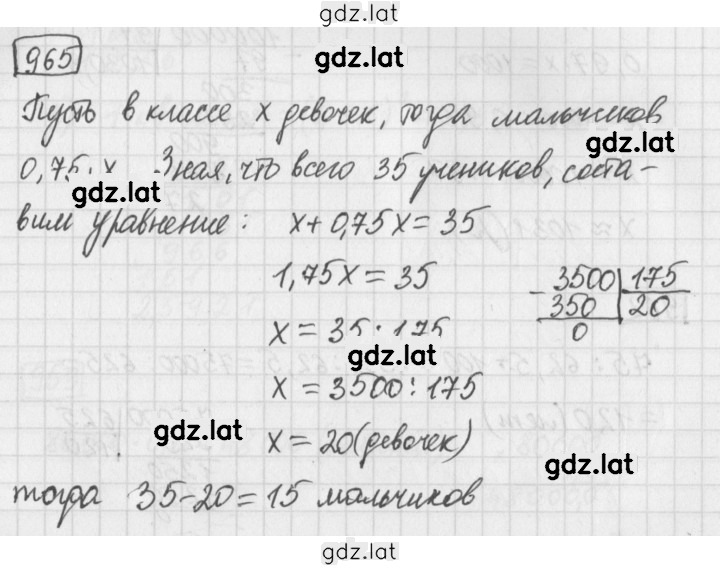 gdz.lat
965
gdz.lat
Пусть в классе x девочек, тогда мальчиков
gdz.lat
0,75·x. Зная, что всего 35 учеников, соста-
gdz.lat
вим уравнение: x+0,75x=35
1,75x=35
3500 175
- 350 20
0
x=35:1,75
gdz.lat
x=3500:175
gdz.lat
x=20(девочек)
gdz.lat
тогда 35-20=15 мальчиков
gdz.lat